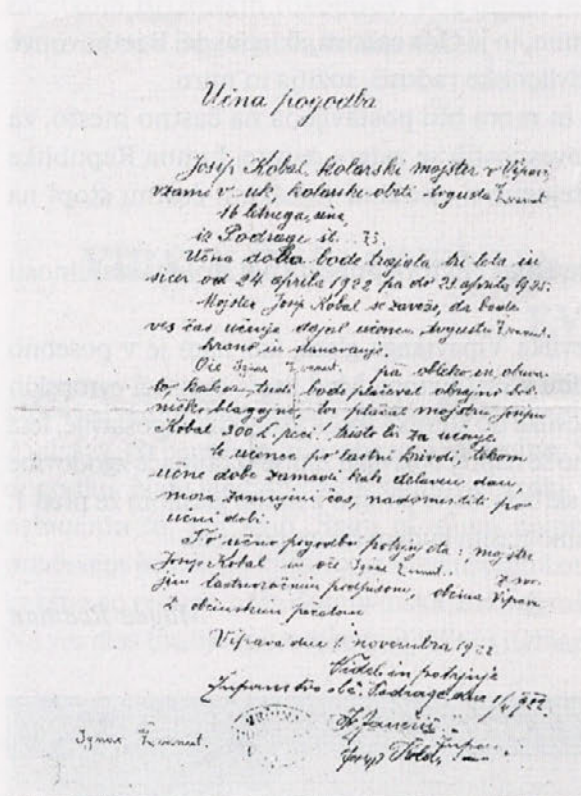 Učna pogodba
Josip Kobal, kolarski mojster v Vipavi,
vzame v uk kolarske obrti Avgusta Žvanut
16 letnega, sina,
iz Podrage št. 73.
Učna doba bode trajala tri leta in
sicer od 24. aprila 1922 pa do 24. aprila 1925.
Mojster Josip Kobal se zaveže, da bode
ves čas učenja dajal učencu Avgustu Žvanut,
hrano in stanovanje.
Oče Ignac Žvanut, pa obleko in obuvalo
kakor tudi bode plačeval obrtni
blagajni, ter plačal mojstru Josipu
Kobal 300 L reci! tristo lir za učenje
Če učenec po lastni krivdi, tekom
učne dobe zamudi kak delavni dan,
mora zamujeni čas, nadomestiti po
učni dobi.
To učno pogodbo potrjujeta: mojster
Josip Kobal in oče Ignac Žvanut. s
lastnoročnim podpisom, občina Vipava
z občinskim pečatom.
Vipava dne 1. novembra 1922
Videl in potrjuje
Županstvo obč. Podraga, dne 1/11 922
Ignac Žvanut.
Župan
Josip